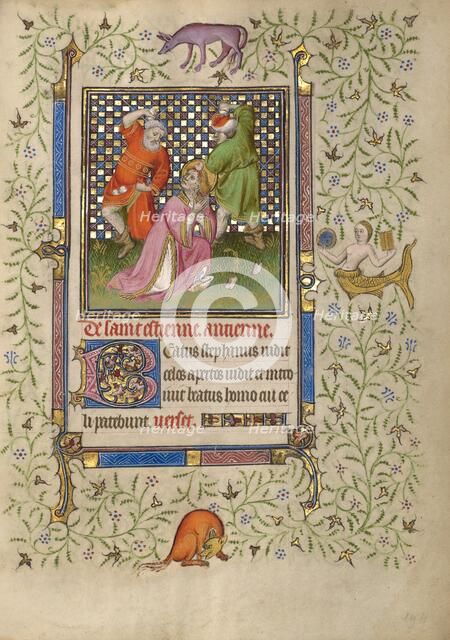 De saint estienne. antienne.
Beatus stephanus vidit
celos apertos vidit et intro
iuit beatus homo cui ce
li patebunt. verset.
Heritage
Heritage
Heritage
Heritage
Heritage
Heritage